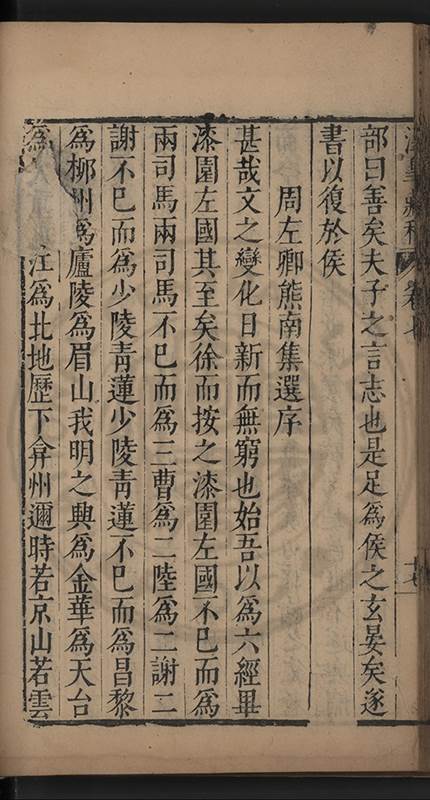 部曰善矣夫子之言志也是足為侯之玄晏矣遂
書以復於侯
周左卿熊南集選序
甚哉文之變化日新而無窮也始吾以為六經畢
漆園左國其至矣徐而按之漆園左國不已而為
兩司馬兩司馬不已而為三曹為二陸為二謝二
謝不已而為少陵青蓮少陵青蓮不已而為昌黎
為柳州為廬陵為眉山我明之興為金華為天台
為 注為北地歷下弇州邇時若京山若雲